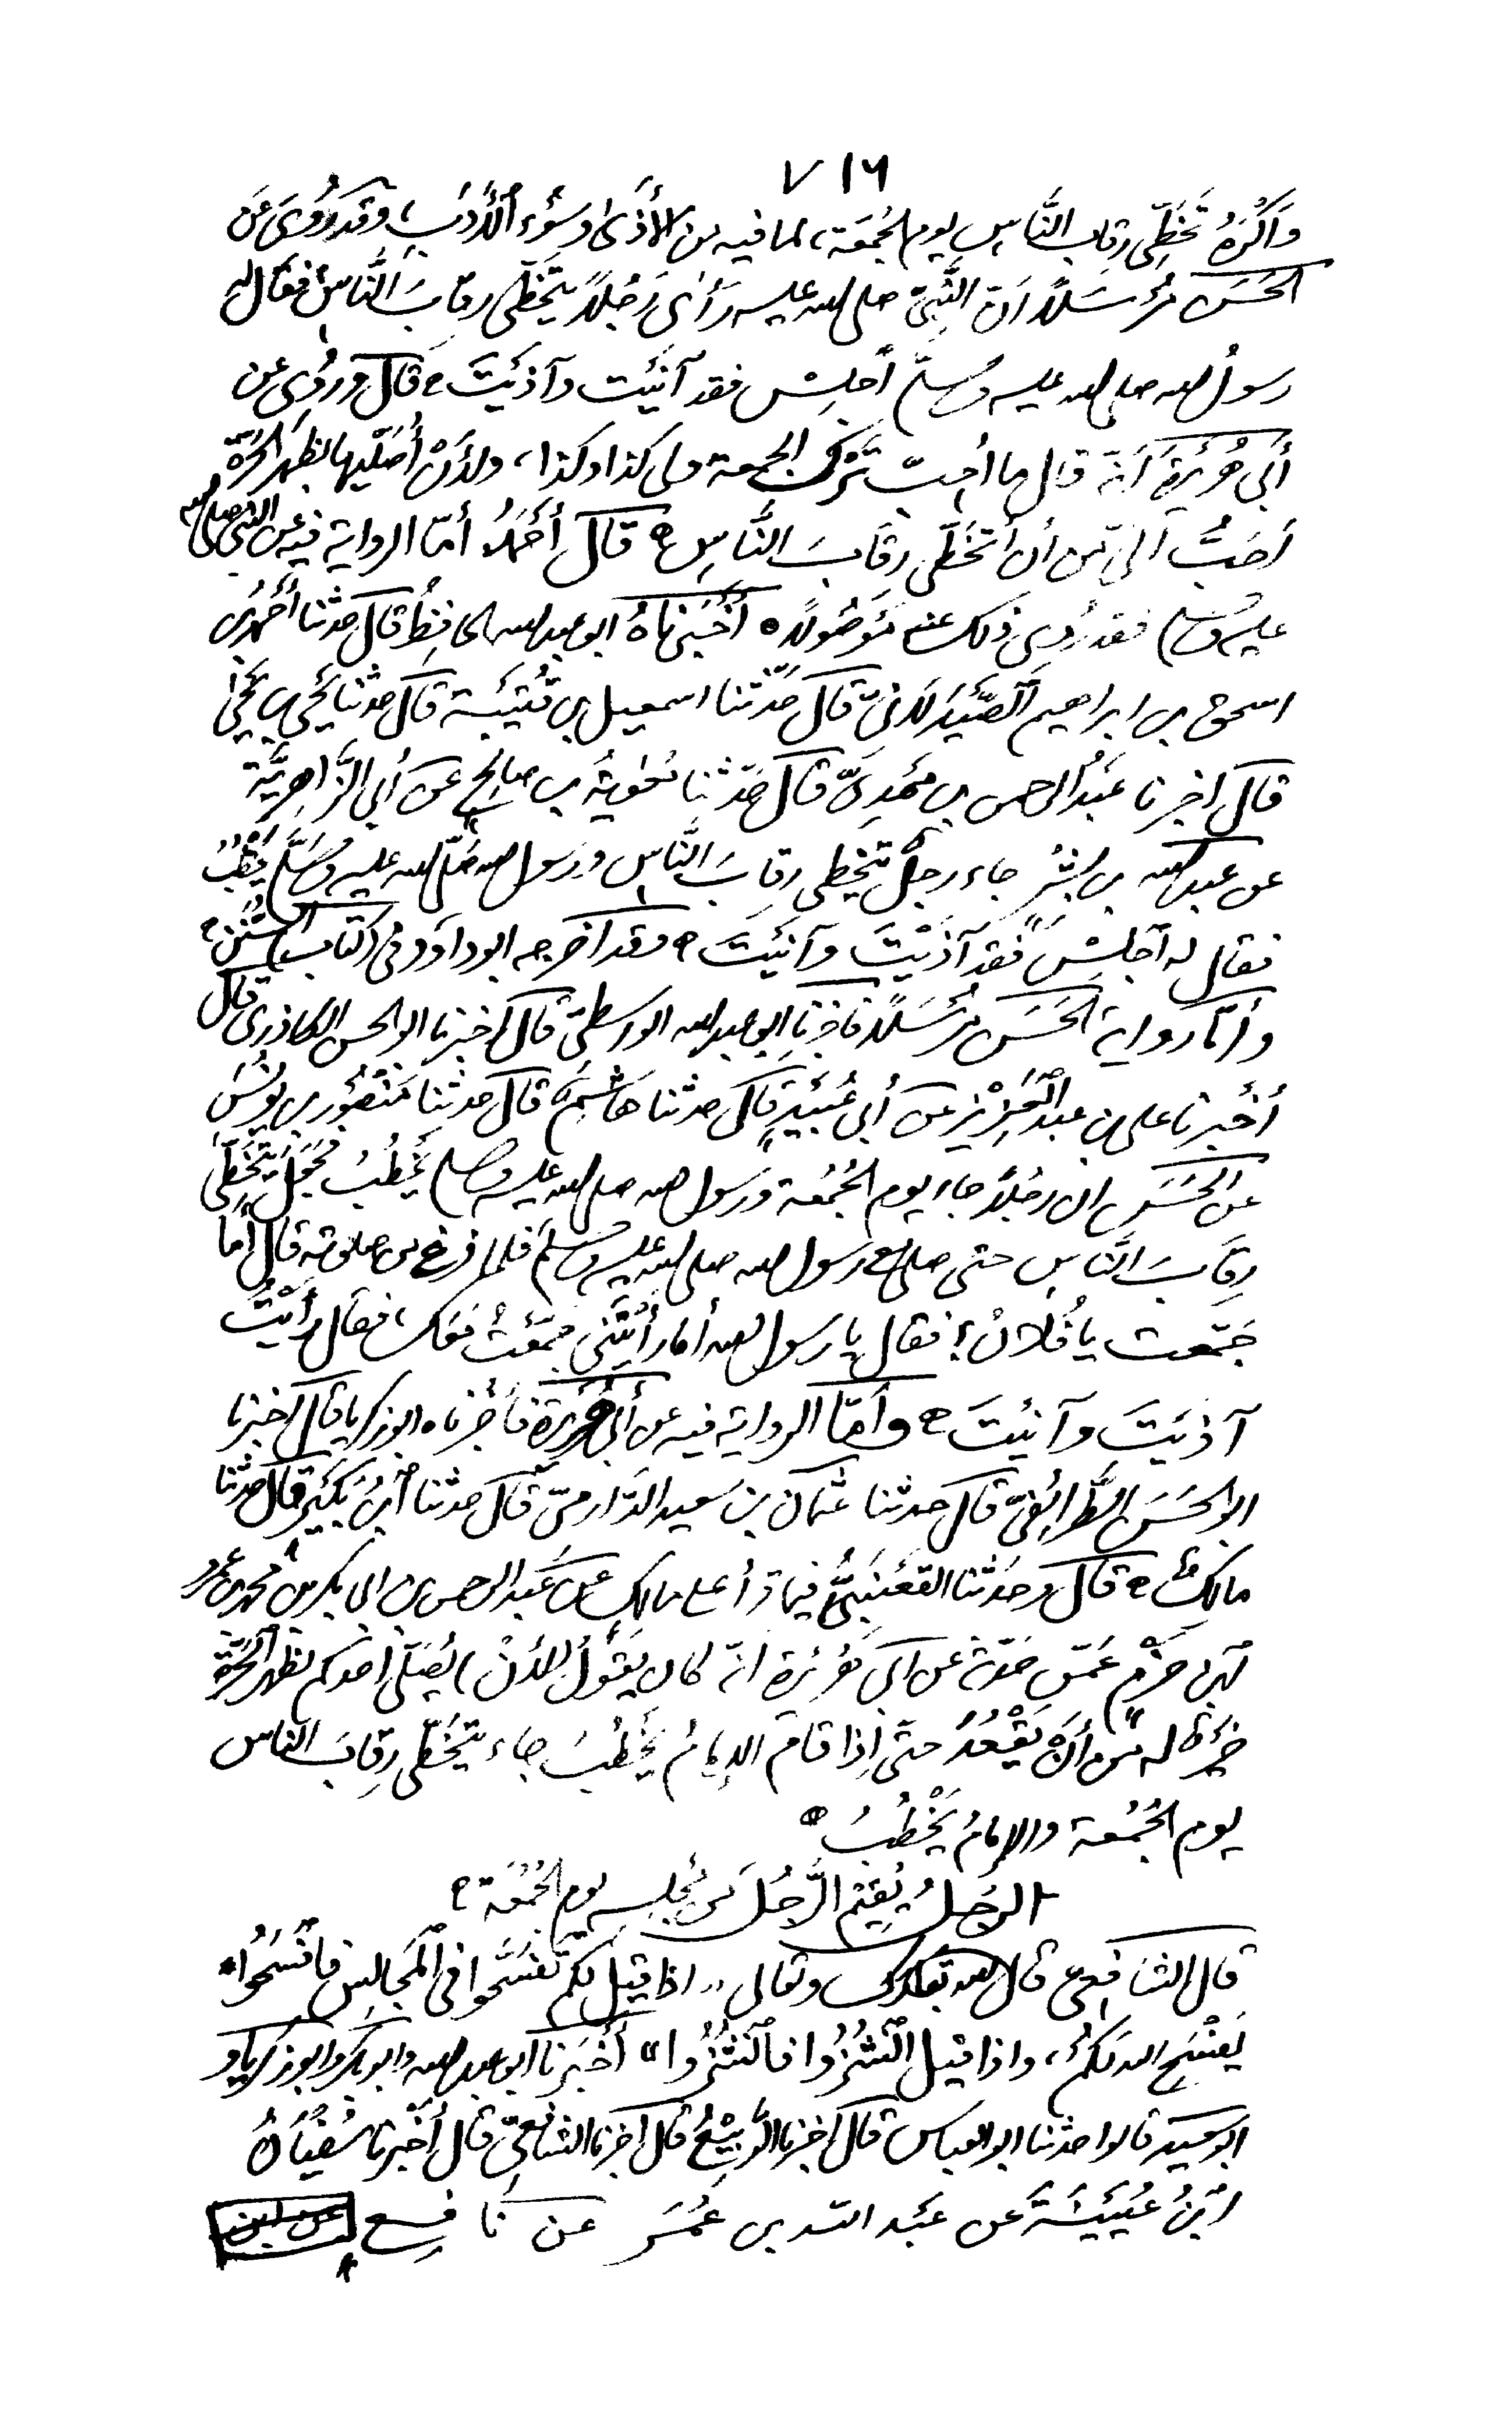 ٧١٦
وَأكْرَهُ تَخَطِّي رِقاب النَّاسِ يوم الجُمُعَة، لما فيه من الأذَىٰ وسُوْءِ الْأَدَبِ، وقد رُوِيَ عَن
الحَسَن مُرْسَلاً اَنّ النَّبِيّ صلى الله عليه رَأىٰ رَجُلاً يَتَخَطَّى رِقابَ النَّاسِ فقال له
رسولُ الله صلى الله عليه وسلَّم اجْلِسْ فقد آنَيْت وآذَيْتَ قال ورُوِي عن
أبي هُرَيْرَة اَنّهُ قال ما أحِبّ تَرْكَ الجمعة ولي كذا وكذا، ولأَنْ أُصَلّيها بظهر الحَرَّة
اَحَبُّ اليّ من أن أتَخَطّى رِقَابَ النَّاسِ قال أحْمَدُ أمّا الرواية فيه عن النبى صلى الله
عليه وسلم فقد رُوِى ذلك عنه مَوْصُولاً أخْبَرناهُ ابو عبد الله الحافظُ قال حدثنا أحْمَد بن
اسحق بن ابراهيم الصَّيْدَلانِيّ قال حَدّثنا اسمعيل بن قُتَيْبَة قال حدثنا يَحْيى بن يَحْيىٰ
قال اخبرنا عَبْدُ الرحمن بن مَهْدِيّ قال حَدّثنا مُعٰوِيَةُ بن صالح عن أبي الزَّاهِرِيَّة
عن عبد الله بن بُسْر جاء رجلٌ يتَخَطى رقابَ النَّاسِ ورسول الله صَلّى الله عليه وسَلَّم يَخْطُبُ
فقال له اجْلِسْ فقد آذَيْتَ وآنَيْتَ فقد اخرجه ابو داوَد في (كتاب) السُّنن
وأمّا رواية الحَسَن مُرْسَلاً فاخبرنا ابو عبد الله الواسطيّ قال اخبرنا ابو الحسن الكاذرى قال
أخْبرنا على بن عبد الْعَزِيْز عن أبي عُبَيْدٍ قال حدثنا هَاشِمٌ قال حدثنا مَنْصُوْر بن يُونُسَ
عن الحَسَن ان رجُلاً جاء يوم الجُمُعَة ورَسول الله صلى الله عليه وسلم يَخْطُبُ فجَعَلَ يَتَخَطَّى
رِقَابَ النّاسِ حتى صلى مع رَسول الله صلى الله عليه وسلم فلما فرغ من صلوته قال أما
جَمّعت يا فُلانُ؟ فقال يا رَسول الله أما رَأيْتَنِى جَمّعْتُ معك، فقال رَأيْتُكَ
آذَيتَ وآنَيْتَ وأمّا الرواية فيه عن أبي هُرَيْرَة فأخْبرناه ابو زكريا قال اخبرنا
ابو الحَسَن الطَّرائِفِيّ قال حدثنا عثمان بن سعيد الدَّارِميّ قال حدثنا ابْنُ بُكَيْرٍ قال حدثنا
مالكٌ قال وحدّثنا القَعْنَبِيُّ فيما قرأ على مالكٍ عن عَبْد الله بن ابى بكر بن محمد بن عمرو
ابن حَزْمٍ عَمّن حَدّثه عن ابي هُرَيْرَة انّه كان يَقُوْلُ لأنْ يُصَلّى احدكم بظهر الحَرَّة
خَيْرٌ له من أن يَقْعُدَ حتّى إذا قامَ الإمامُ يَخْطُبُ جاء يَتَخَطّى رِقابَ الناس
يوم الجُمُعة والإمامُ يَخْطُبُ
الرَجلُ يُقِيْمُ الرَّجُلَ من مَجْلسِه يوم الجُمُعَة
قال الشافعى قال الله تبارك وتعالى " اذا قيل لكم تَفَسَّحوا فى الْمَجَالِسِ فافْسَحُوا
يَفْسَحِ الله لكُمْ، واذا قيل انْشُزُوا فانْشُزُوا" أخْبَرنا ابو عبد الله وابو بكر وابو زكريا و
ابو سعيد قالوا حدثنا ابو العباس قال اخبرنا الرَّبِيْعُ قال اخبرنا الشافعيّ قال أخْبرنا سُفيَانُ
ابْنُ عُيَيْنَة عَن عَبْد الله بن عُمَر عَنْ نَافِع عن ابن